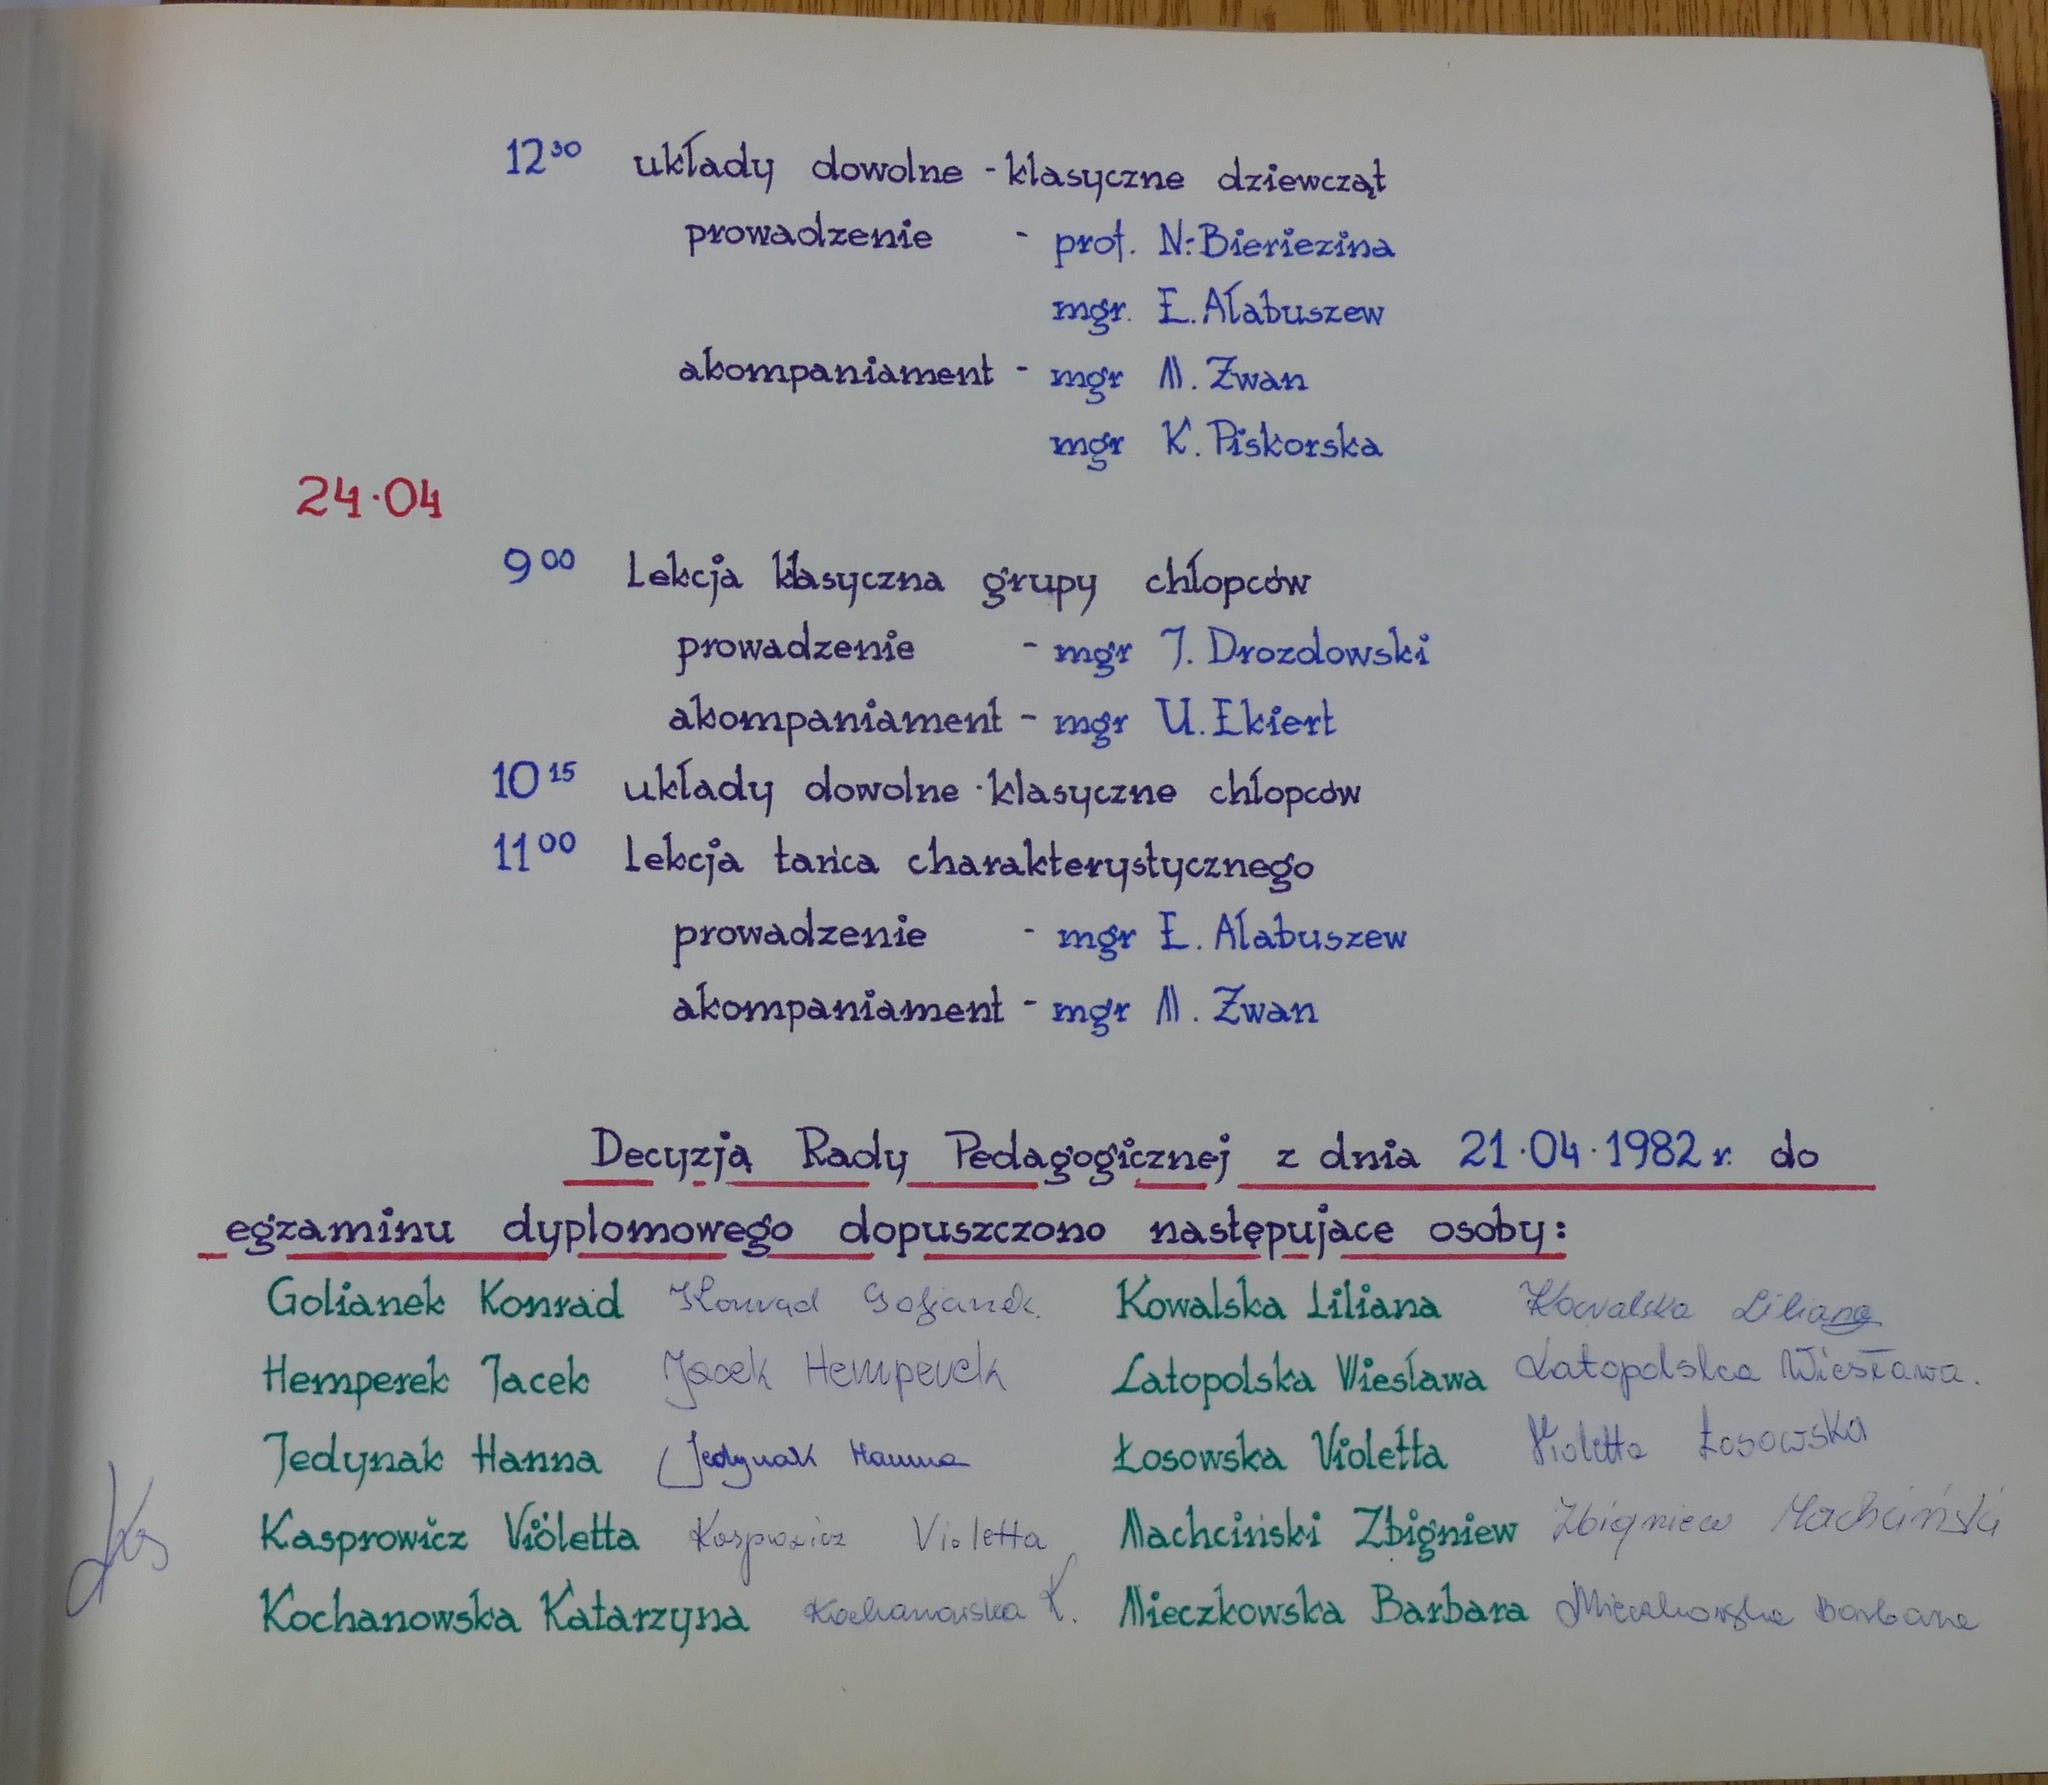 12³⁰ układy dowolne - klasyczne dziewcząt
prowadzenie - prof. N. Bieriezina
mgr. E. Ałabuszew
akompaniament - mgr M. Zwan
mgr K. Piskorska
24·04
9⁰⁰ Lekcja klasyczna grupy chłopców
prowadzenie - mgr J. Drozdowski
akompaniament - mgr U. Ekiert
10¹⁵ układy dowolne · klasyczne chłopców
11⁰⁰ Lekcja tańca charakterystycznego
prowadzenie - mgr E. Ałabuszew
akompaniament - mgr M. Zwan
Decyzją Rady Pedagogicznej z dnia 21·04·1982 r. do
egzaminu dyplomowego dopuszczono następujace osoby:
Golianek Konrad Konrad Golianek Kowalska Liliana Kowalska Liliana
Hemperek Jacek Jacek Hemperek Latopolska Wiesława Latopolska Wiesława.
Jedynak Hanna Jedynak Hanna Łosowska Violetta Violetta Łosowska
Kasprowicz Violetta Kasprowicz Violetta Machciński Zbigniew Zbigniew Machciński
Kochanowska Katarzyna Kochanowska K. Mieczkowska Barbara Mieczkowska Barbara